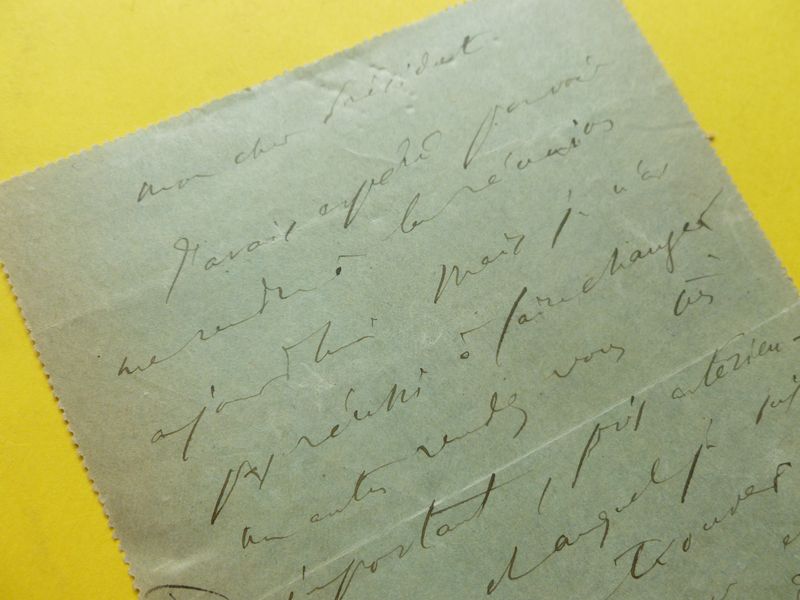 mon cher Président.
J'avais espéré pouvoir
me rendre à la réunion
aujourd'hui mais je n'ai
pas réussi à faire changer
un autre rendez vous très
important, pris antérieu-
et auquel je
trouver